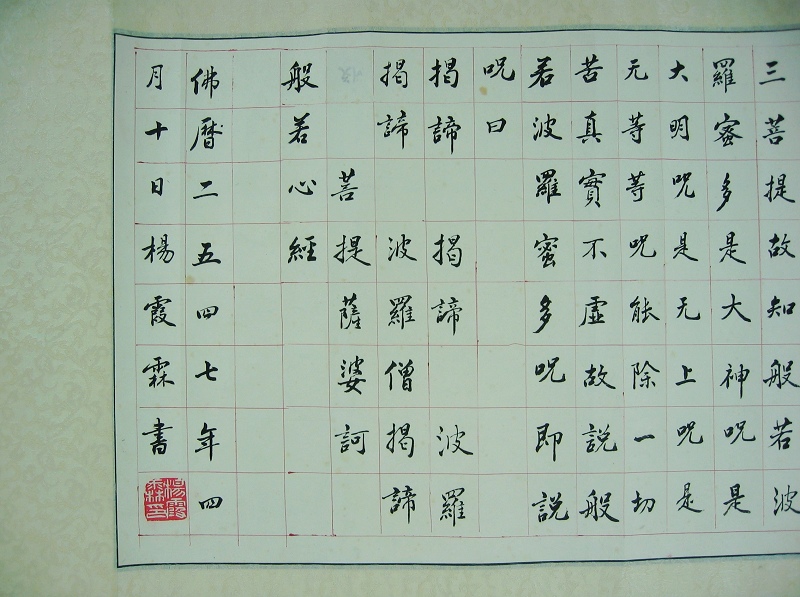 三菩提故知般若波
羅蜜多是大神咒是
大明咒是无上咒是
无等等咒能除一切
苦真實不虛故說般
若波羅蜜多咒即說
咒曰
揭諦 揭諦 波羅
揭諦 波羅僧揭諦
菩提薩婆訶
般若心經
佛曆二五四七年四
月十日楊霞霖書
楊霞霖印